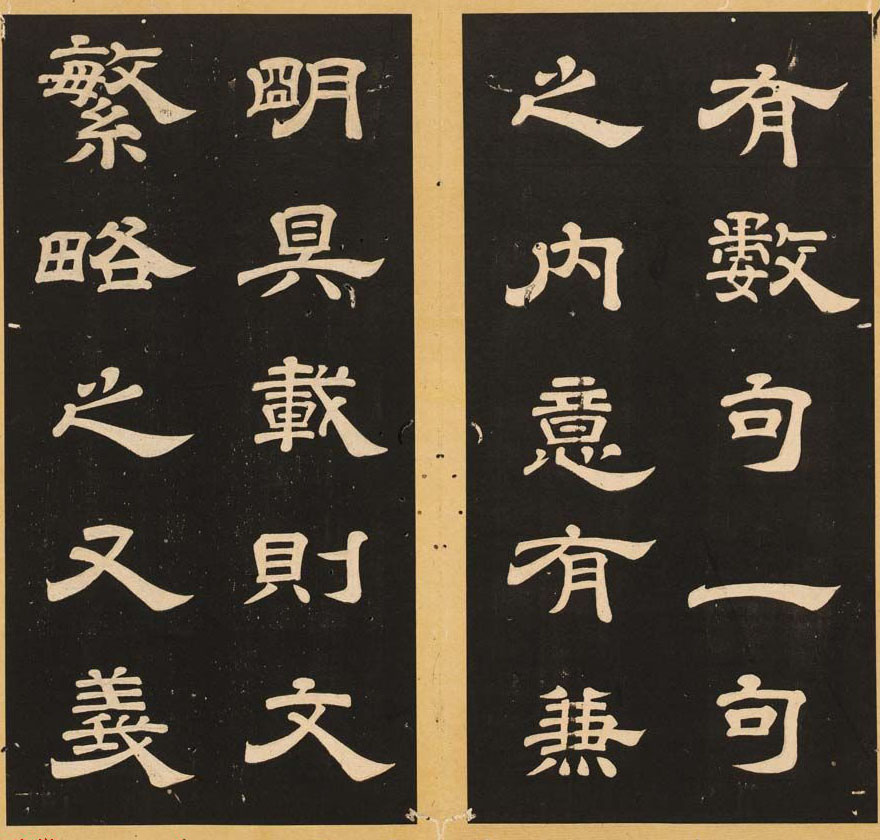 有數句一句
之內意有兼
明具載則文
繁略之又義